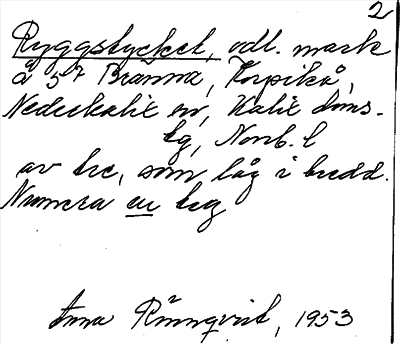 2
Ryggstycket, odl. mark
å 57 Bränna, Korpikå,
Nederkalix sn, Kalix doms-
tg, Norrb. l
av tre, som låg i bredd.
Numera en teg
Anna Rönnqvist, 1953